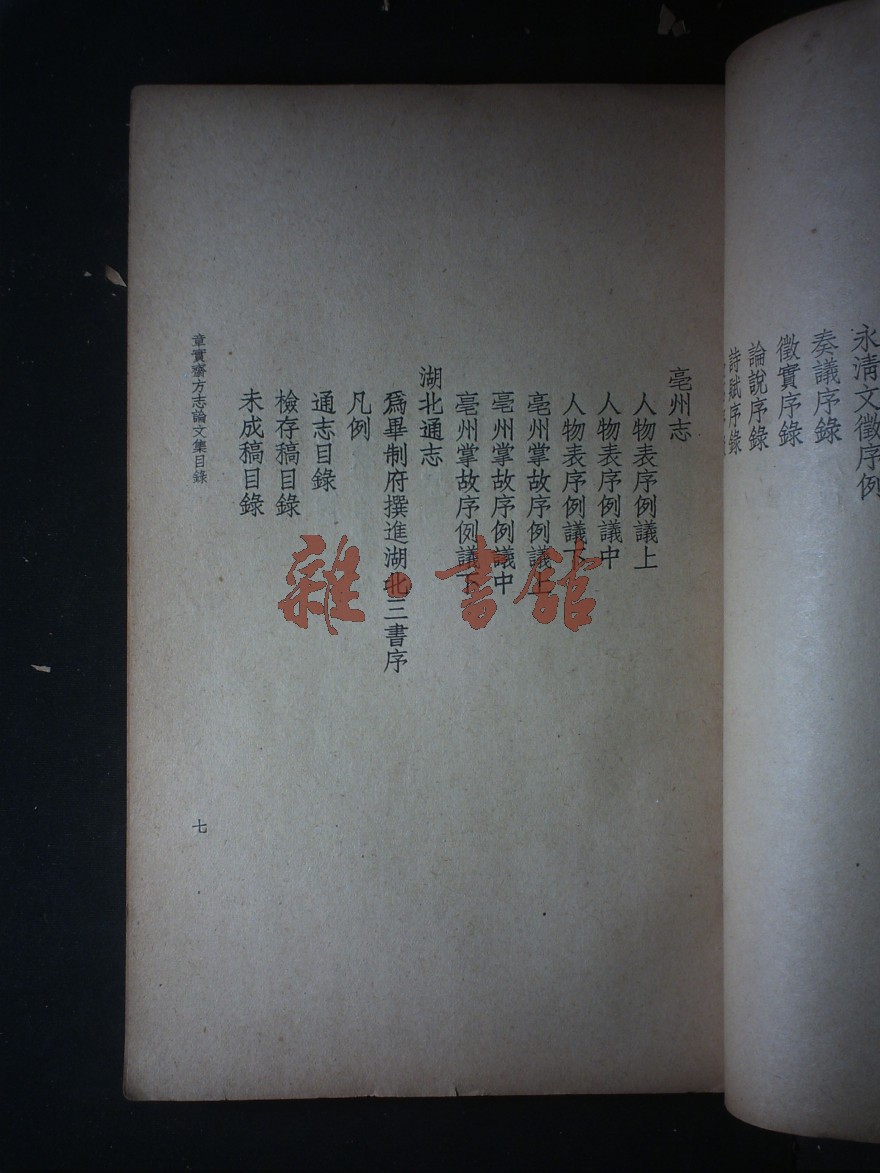 永清文徵序例
奏議序錄
徵實序錄
論說序錄
詩賦序錄
亳州志
人物表序例議上
人物表序例議中
人物表序例議下
亳州掌故序例議上
亳州掌故序例議中
亳州掌故序例議下
湖北通志
爲畢制府撰進湖北三書序
凡例
通志目錄
檢存稿目錄
未成稿目錄
章實齋方志論文集目錄
七
雜·書館